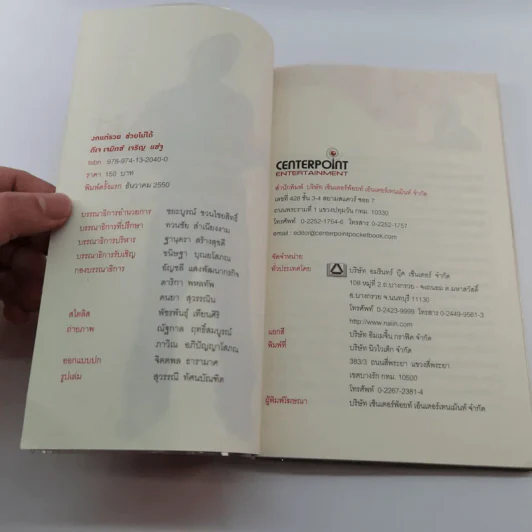 งกแต่รวย ช่วยไม่ได้
ดีเจ เจมิกซ์ เจริญ แซ่จู
isbn : 978-974-13-2040-0
ราคา 150 บาท
พิมพ์ครั้งแรก ธันวาคม 2550
บรรณาธิการอำนวยการ ชยะบูรณ์ ชวนไชยสิทธิ์
บรรณาธิการที่ปรึกษา ทวนชัย สำเนียงงาม
บรรณาธิการบริหาร ฐานุตรา สร้างสุขดี
บรรณาธิการรับเชิญ ขนิษฐา บุณยโสภณ
กองบรรณาธิการ ธัญชลี แสงพัฒนากรกิจ
ดาริกา พหลทัพ
คนยา สุวรรณิน
สไตลิส พัชรพันธุ์ เทียนศิริ
ถ่ายภาพ ณัฐกาล ฤทธิ์สมบูรณ์
ภาวิณ อภิปัญญาโสภณ
ออกแบบปก จิตตพล ธารามาศ
รูปเล่ม สุวรรณี ทัศนบัณฑิต
CENTERPOINT
ENTERTAINMENT
สำนักพิมพ์ บริษัท เซ็นเตอร์พ้อยท์ เอ็นเตอร์เทนเม้นท์ จำกัด
เลขที่ 428 ชั้น 3-4 สยามสแควร์ ซอย 7
ถนนพระรามที่ 1 แขวงปทุมวัน กทม. 10330
โทรศัพท์ 0-2252-1754-6 โทรสาร 0-2252-1757
email : editor@centerpointpocketbook.com
จัดจำหน่าย
ทั่วประเทศโดย บริษัท อมรินทร์ บุ๊ค เซ็นเตอร์ จำกัด
108 หมู่ที่ 2 ถ.บางกรวย - จงถนอม ต.มหาสวัสดิ์
อ.บางกรวย จ.นนทบุรี 11130
โทรศัพท์ 0-2423-9999 โทรสาร 0-2449-9561-3
http://www.naiin.com
แยกสี บริษัท อิมเมจิ้น กราฟิค จำกัด
พิมพ์ที่ บริษัท นิวไวเต็ก จำกัด
383/3 ถนนสี่พระยา แขวงสี่พระยา
เขตบางรัก กทม. 10500
โทรศัพท์ 0-2267-2381-4
ผู้พิมพ์โฆษณา บริษัท เซ็นเตอร์พ้อยท์ เอ็นเตอร์เทนเม้นท์ จำกัด